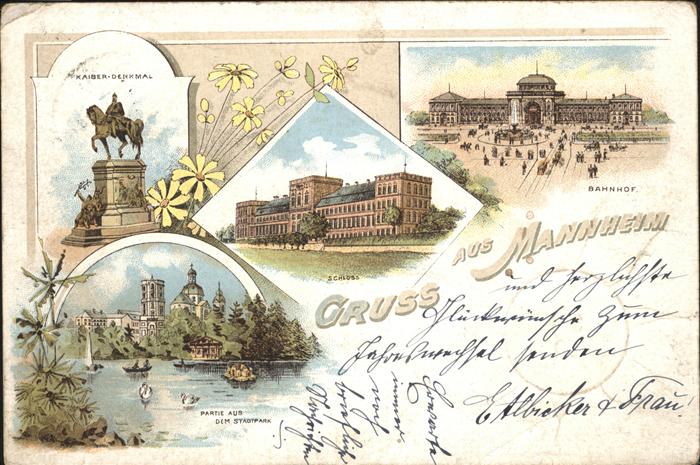 KAISER-DENKMAL
BAHNHOF.
SCHLOSS
GRUSS AUS MANNHEIM
PARTIE AUS
DEM STADTPARK
und herzlichste
Glückwünsche zum
Jahreswechsel senden
& Frau
immer
noch